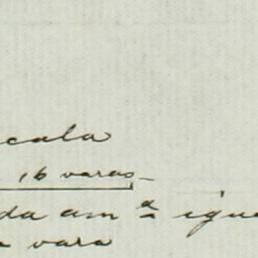 cala
16 varas
da am.ª igu
a vara